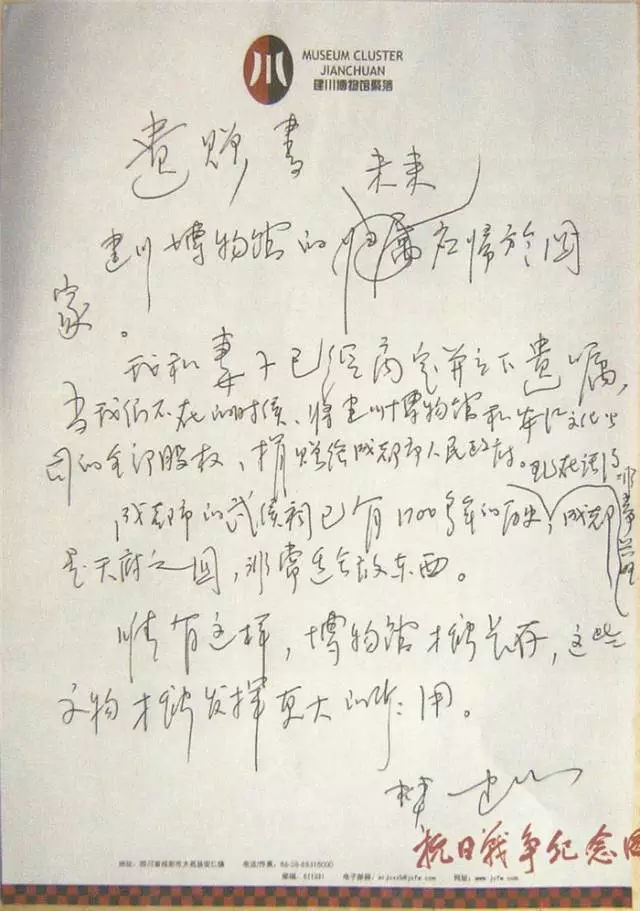 川
MUSEUM CLUSTER
JIANCHUAN
建川博物馆聚落
遗赠书
未来
建川博物馆的归属应帰於国
家。
我和妻子已经商定并立下遗嘱,
当我们不在的时候、将建川博物馆和安仁文化公
司的全部股权,捐赠给成都市人民政府。
现在还
非常
成都市的武侯祠已有1700多年的历史,成都
是天府之国,非常适合放东西。
惟有这样,博物馆才能长存,这些
文物才能发挥更大的作用。
樊建川
抗日战争纪念
地址:四川省成都市大邑县安仁镇 电话/传真:86-28-88318000
邮编: 电子邮箱: 网址: